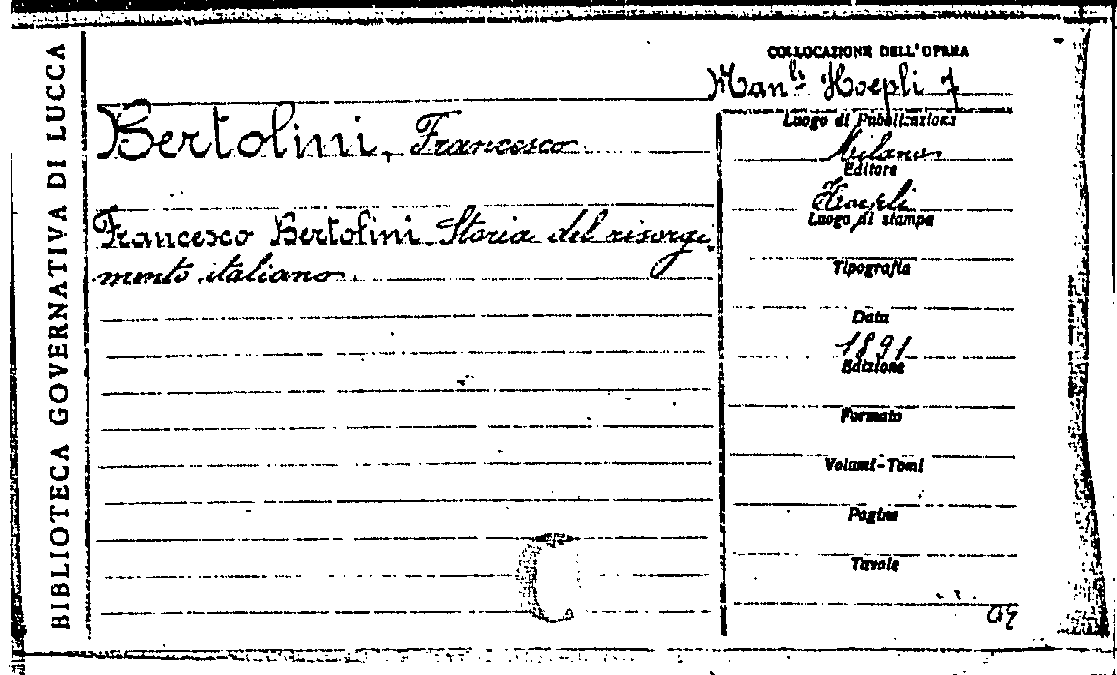 BIBLIOTECA GOVERNATIVA DI LUCCA
COLLOCAZIONE DELL'OPERA
Man.li Hoepli 7
Bertolini, Francesco
Francesco Bertolini Storia del risorgi-
mento italiano.
Luogo di Pubblicazione
Milano
Editore
Hoepli
Luogo di stampa
Tipografia
Data
1891
Edizione
Formato
Volumi-Tomi
Pagine
Tavole